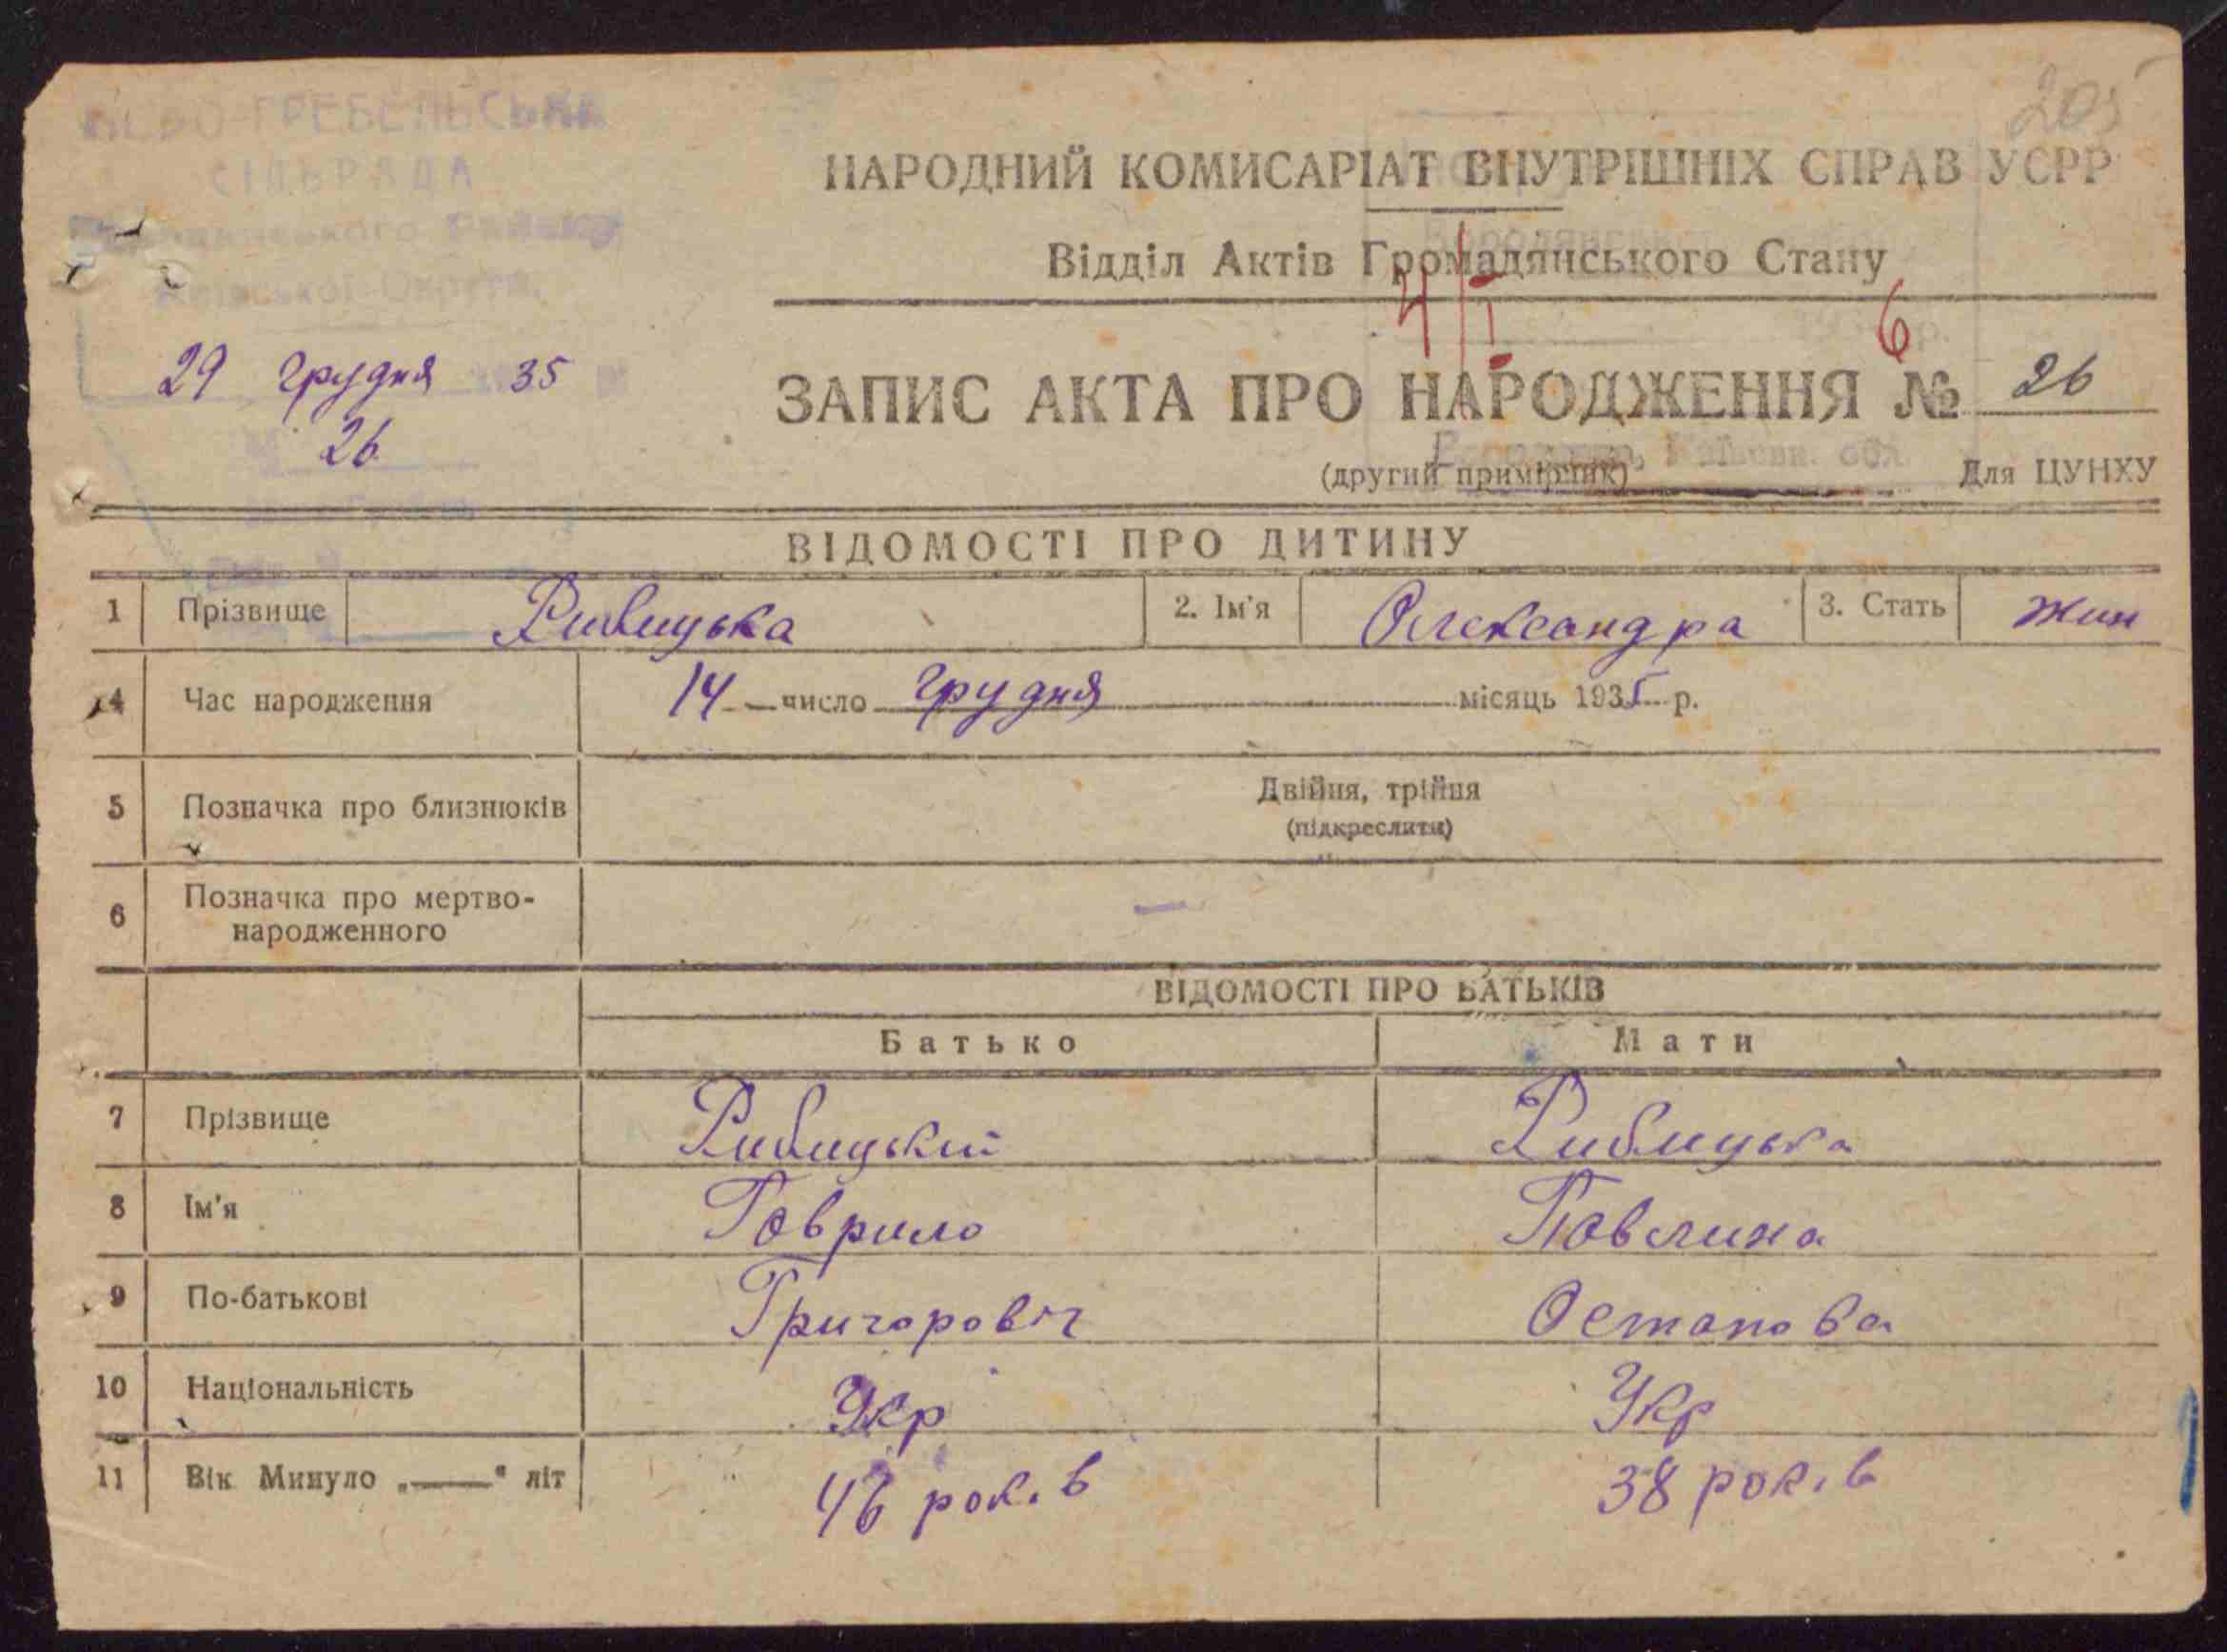 205
ГРЕБЕЛЬСЬКА
СІЛЬРАДА
Району
Округи
НАРОДНИЙ КОМИСАРІАТ ВНУТРІШНІХ СПРАВ УСРР
Відділ Актів Громадянського Стану
4/I 6
29 грудня 35
26
ЗАПИС АКТА ПРО НАРОДЖЕННЯ № 26
(другий примірник) Для ЦУНХУ
ВІДОМОСТІ ПРО ДИТИНУ
1 Прізвище Рибицька 2. Ім'я Олександра 3. Стать жин
4 Час народження 14 число грудня місяць 1935 р.
5 Позначка про близнюків Двійня, трійня
(підкреслити)
6 Позначка про мертво-
народженного —
ВІДОМОСТІ ПРО БАТЬКІВ
Батько Мати
7 Прізвище Рибицький Рибицька
8 Ім'я Гаврило Павлина
9 По-батькові Григоровіч Остапова
10 Національність Укр Укр
11 Вік Минуло „——" літ 46 років 38 років